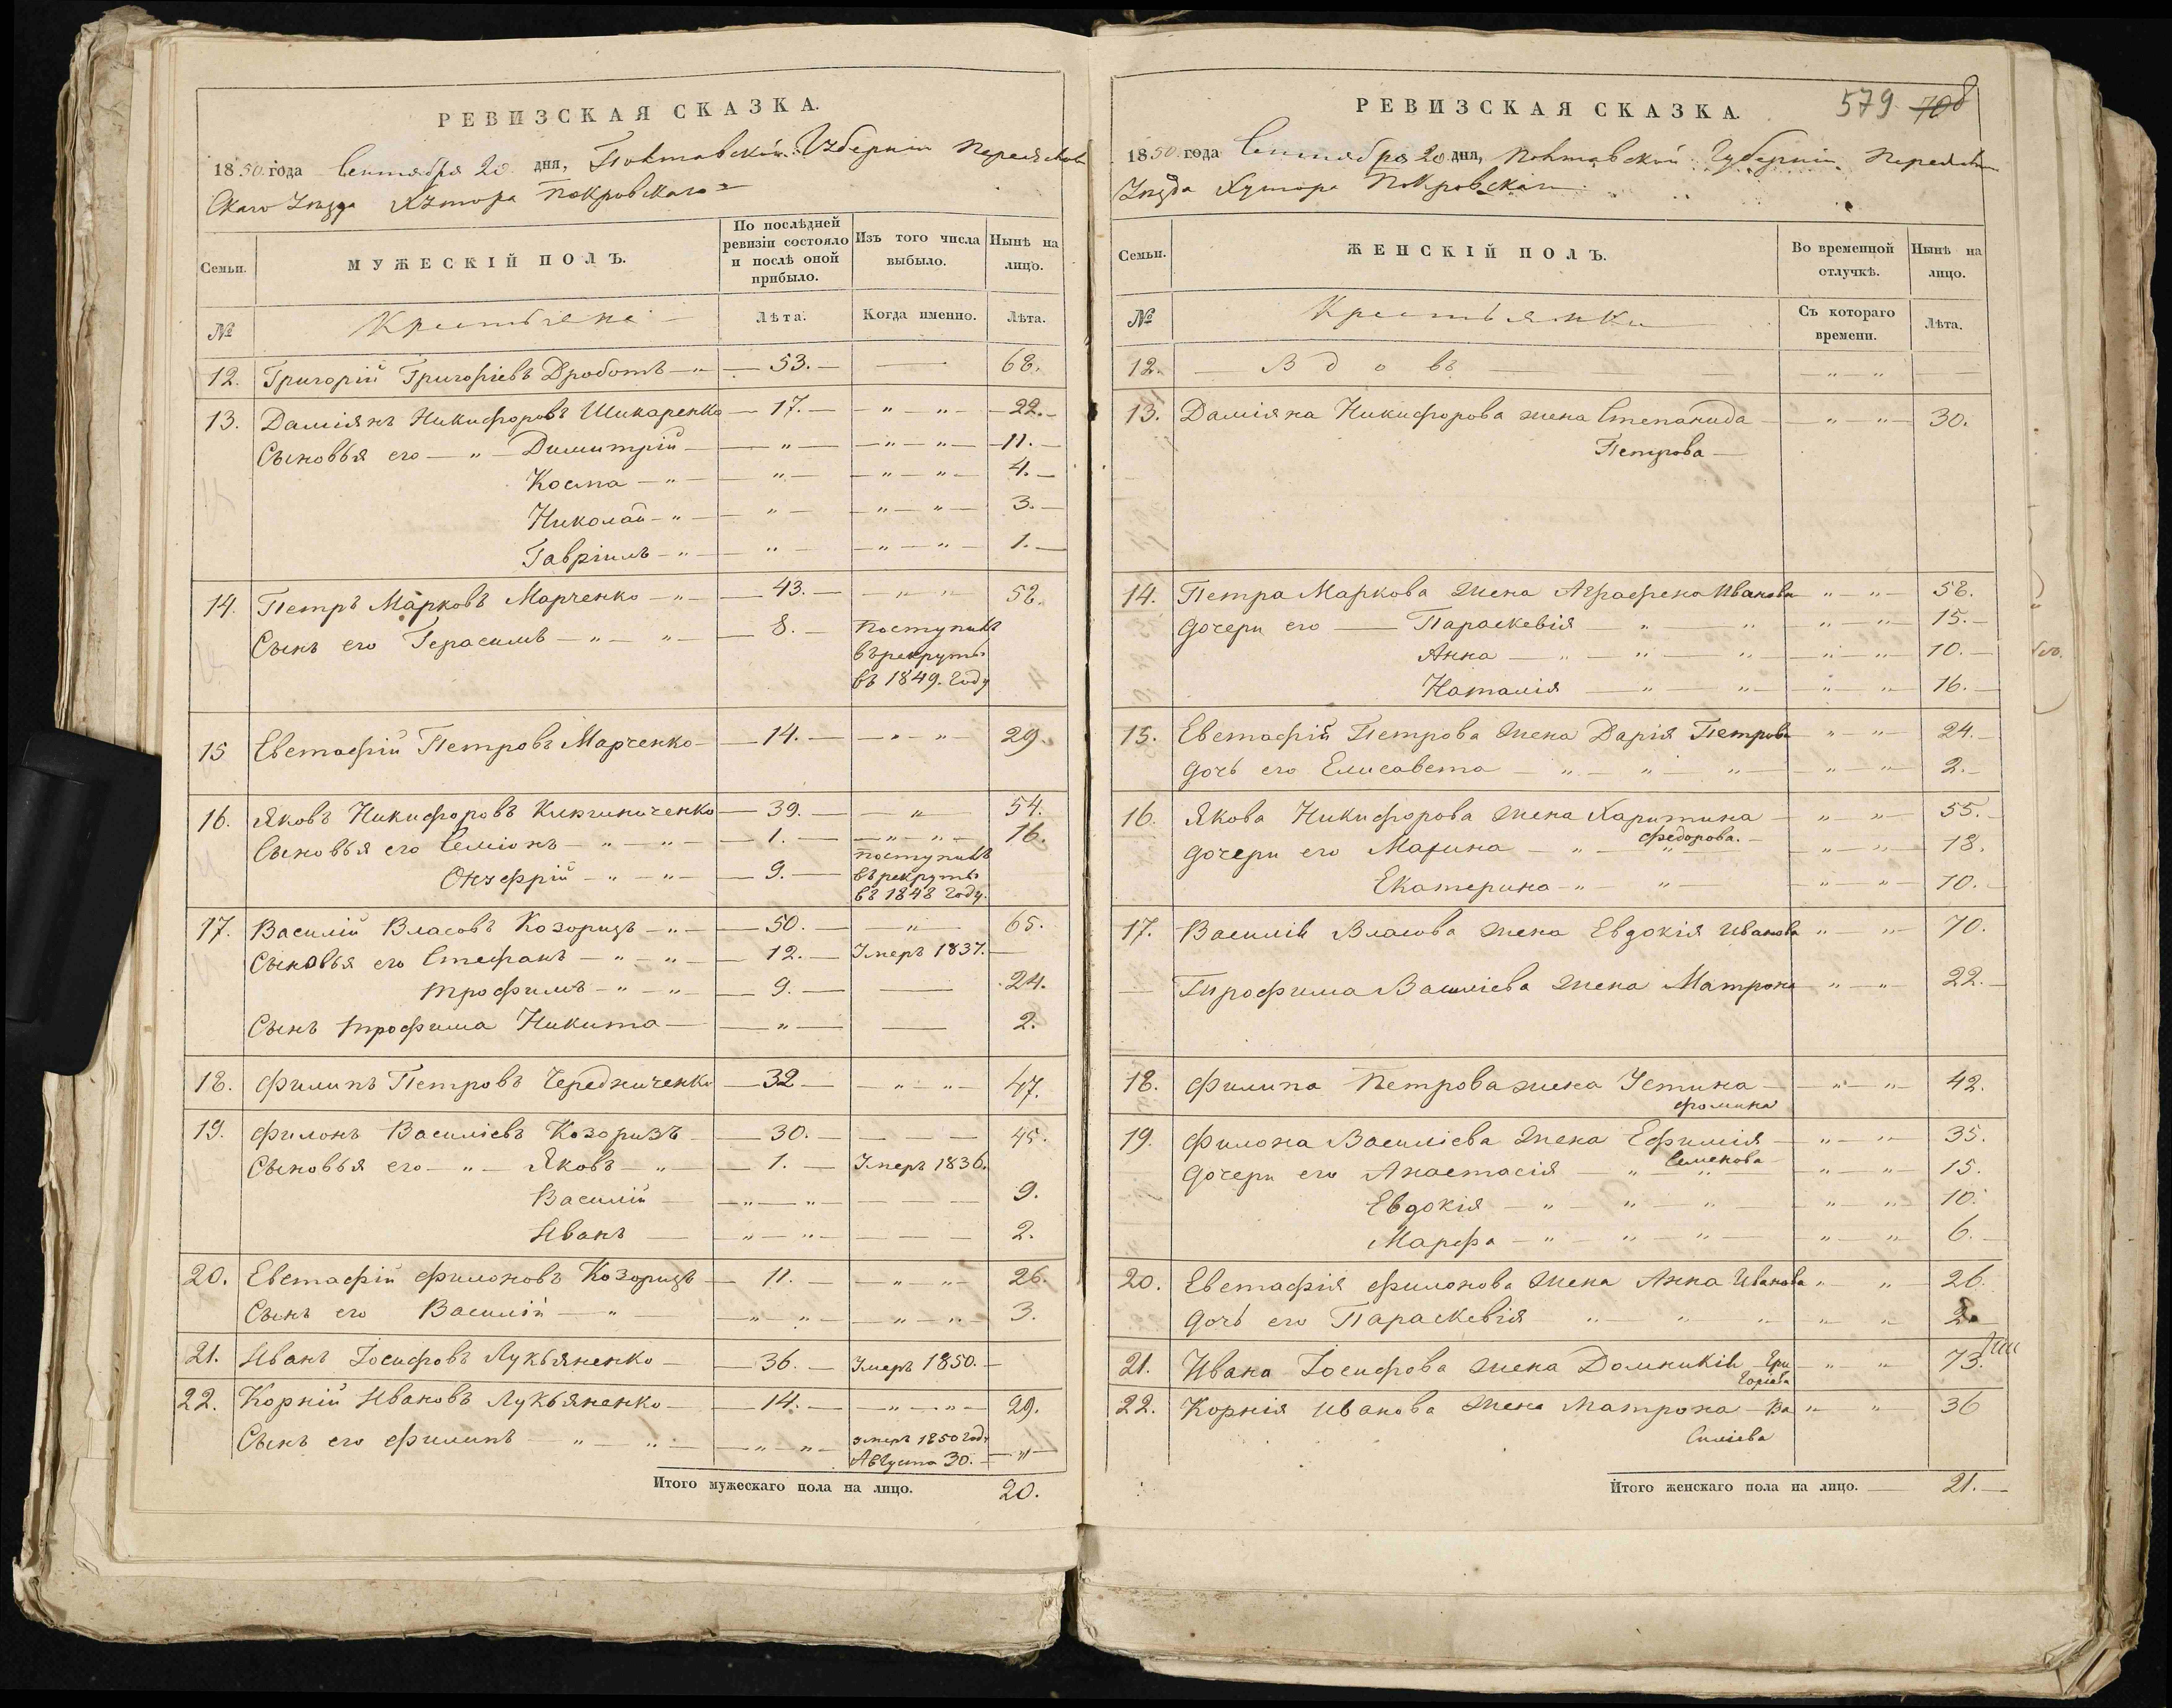 РЕВИЗСКАЯ СКАЗКА.
1850. года Сентября 20 дня, Полтавской Губерніи Переяслав
скаго Уѣзда Хутора Покровскаго
Семьи.
МУЖЕСКІЙ ПОЛЪ.
По послѣдней ревизіи состояло и послѣ оной прибыло.
Изъ того числа выбыло.
Нынѣ на лицо.
№
Крестьяне
Лѣта.
Когда именно.
Лѣта.
12. Григорій Григоріевъ Дроботъ — " — 53. — — 68.
13. Даміянъ Никифоровъ Шикаренко — 17. — " — " — 22. —
Сыновья его — " — Димитрій — " — " — " — 11. —
Косма — " — " — " — " — 4. —
Николай — " — " — " — " — 3. —
Гавріилъ — " — " — " — " — 1. —
14. Петръ Марковъ Марченко — " — 43. — " — " 58.
Сынъ его Герасимъ — " — " — 8. — Поступилъ
въ рекруты
въ 1849. году
15 Евстафій Петровъ Марченко — 14. — " — " — 29.
16. Яковъ Никифоровъ Кирниченко — 39. — " — 54.
Сыновья его Семіонъ — " — " — 1. — " — " — 16.
Онуфрій — " — " — 9. — Поступилъ
въ рекруты
въ 1848 году.
17. Василій Власовъ Козоризъ — " — 50. — " — 65.
Сыновья его Стефанъ — " — " — 12. — Умеръ 1837. —
Трофимъ — " — " — 9. — — 24.
Сынъ Трофима Никита — " — — 2.
18. Филипъ Петровъ Чередниченко — 32 — " — " — 47.
19. Филонъ Василіевъ Козоризъ — 30. — — — 45.
Сыновья его — " — Яковъ — " — 1. — Умеръ 1836.
Василій — " — " — — — 9.
Иванъ — " — " — — — 2.
20. Евстафій Филоновъ Козоризъ — 11. — " — " — 26.
Сынъ его Василій — " — " — " — " — " — 3.
21. Иванъ Іосифовъ Лукьяненко — 36. — Умеръ 1850. —
22. Корній Ивановъ Лукьяненко — 14. — " — " — 29.
Сынъ его Филипъ — " — " — " — " — умеръ 1850 году
Августа 30. — " —
Итого мужескаго пола на лицо. 20.
РЕВИЗСКАЯ СКАЗКА.
579. 708
1850 года Сентября 20 дня, Полтавской Губерніи Переяслав
Уѣзда Хутора Покровскаго
Семьи.
ЖЕНСКІЙ ПОЛЪ.
Во временной отлучкѣ.
Нынѣ на лицо.
№
Крестьянки
Съ котораго времени.
Лѣта.
12. — Вдовъ — " — " —
13. Даміяна Никифорова жена Степанида — " — " — 30.
Петрова —
14. Петра Маркова жена Аграфена Иванова " — " — 58.
Дочери его — Параскевія " — " — " — " — 15. —
Анна — " — " — " — " — " — 10. —
Наталія — " — " — " — " — 16. —
15. Евстафій Петрова жена Дарія Петрова " — " — 24. —
Дочь его Елисавета — " — " — " — " — " — 2. —
16. Якова Никифорова жена Харитина — " — " — 55. —
Федорова. —
Дочери его Марина — " — " — " — " — 18.
Екатерина — " — " — " — " — 10. —
17. Василій Власова жена Евдокія Иванова " — " — 70.
Трофима Василіева жена Матрона " — " — 22. —
18. Филипа Петрова жена Устина — " — " — 42.
Фомина
19. Филона Василіева жена Ефимія — " — " — 35.
Семенова
Дочери его Анастасія " — " — " — 15.
Евдокія — " — " — " — " — " — 10.
Марфа — " — " — " — " — " — 6. —
20. Евстафія Филонова жена Анна Иванова " — " — 26.
Дочь его Параскевія " — " — " — " — " — 2. —
21. Ивана Іосифова жена Домникій Гри — " — " 73.
горіева
22. Корнія Иванова жена Матрона — Ва " — " — 36
силіева
Итого женскаго пола на лицо. — 21. —